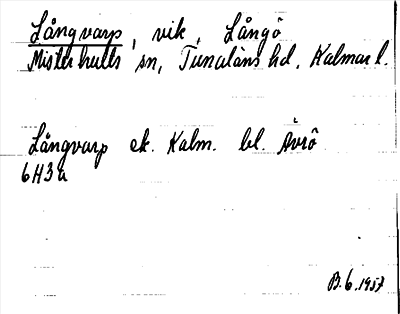 Långvarp, vik, Långö
Misterhults sn, Tunaläns hd, Kalmar l.
Långvarp ek. Kalm. bl. Ävrö
6H3a
B.6.1957